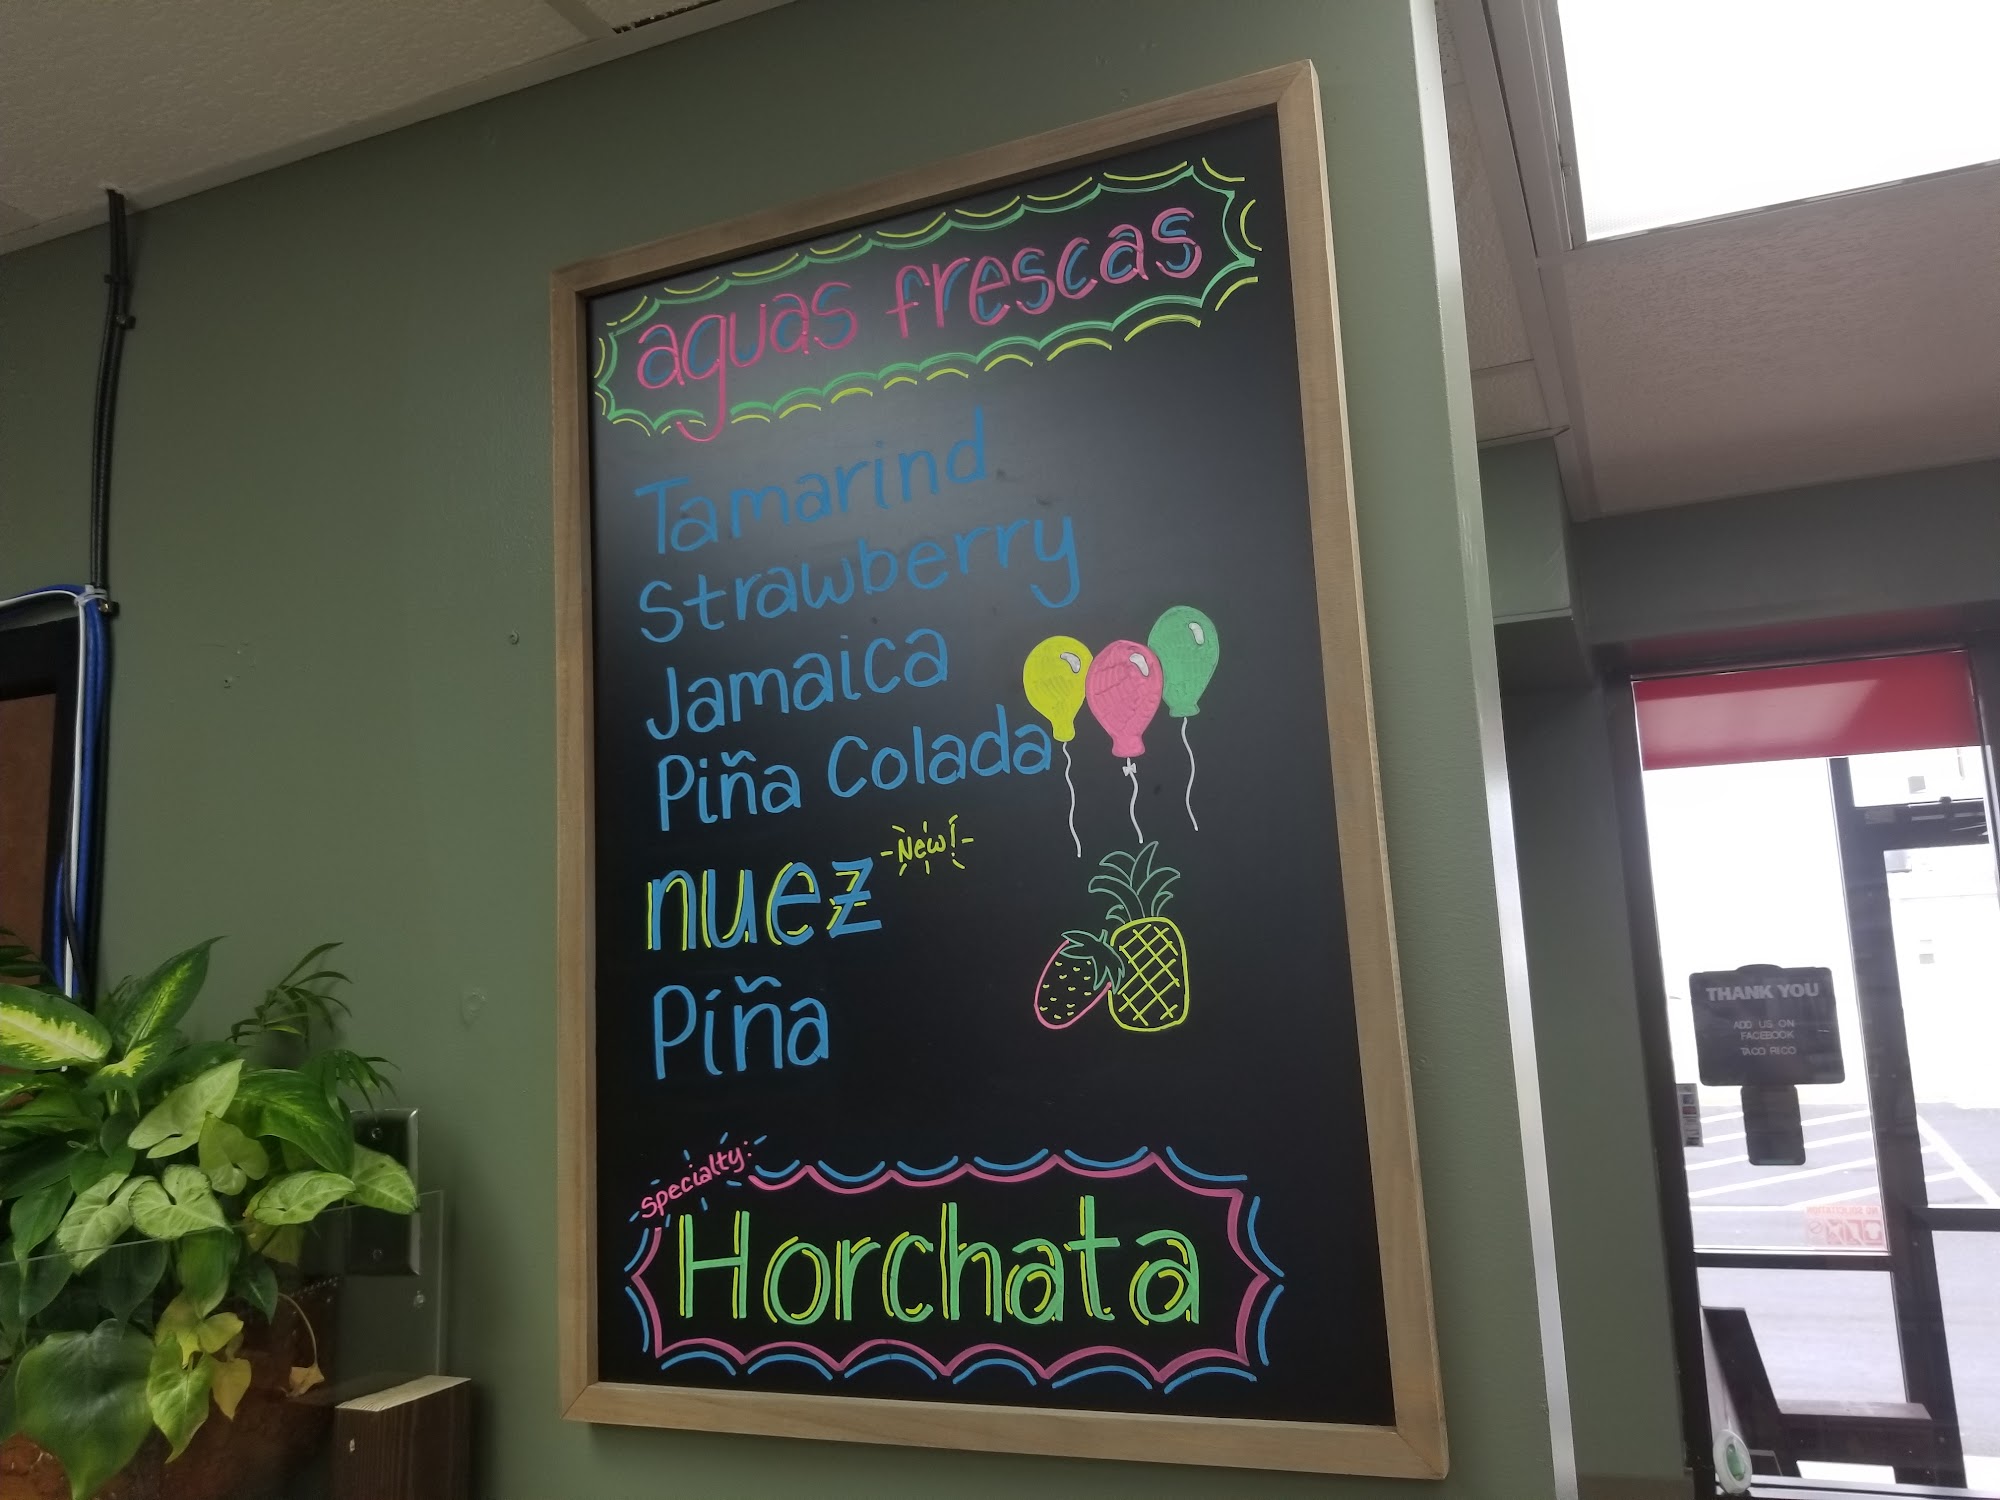 aguas frescas
Tamarind
Strawberry
Jamaica
Piña Colada
nuez New!
Piña
Specialty:
Horchata
THANK YOU
ADD US ON
FACEBOOK
TACO RICO
NO SOLICITATION